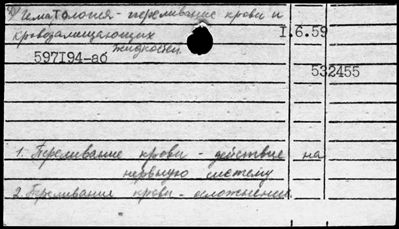 Гематология - переливание крови и
кровозамещающих
жидкостей
I.6.59
597194-аб
532455
1. Переливание крови - действие на
нервную систему
2. Переливания крови - осложнения